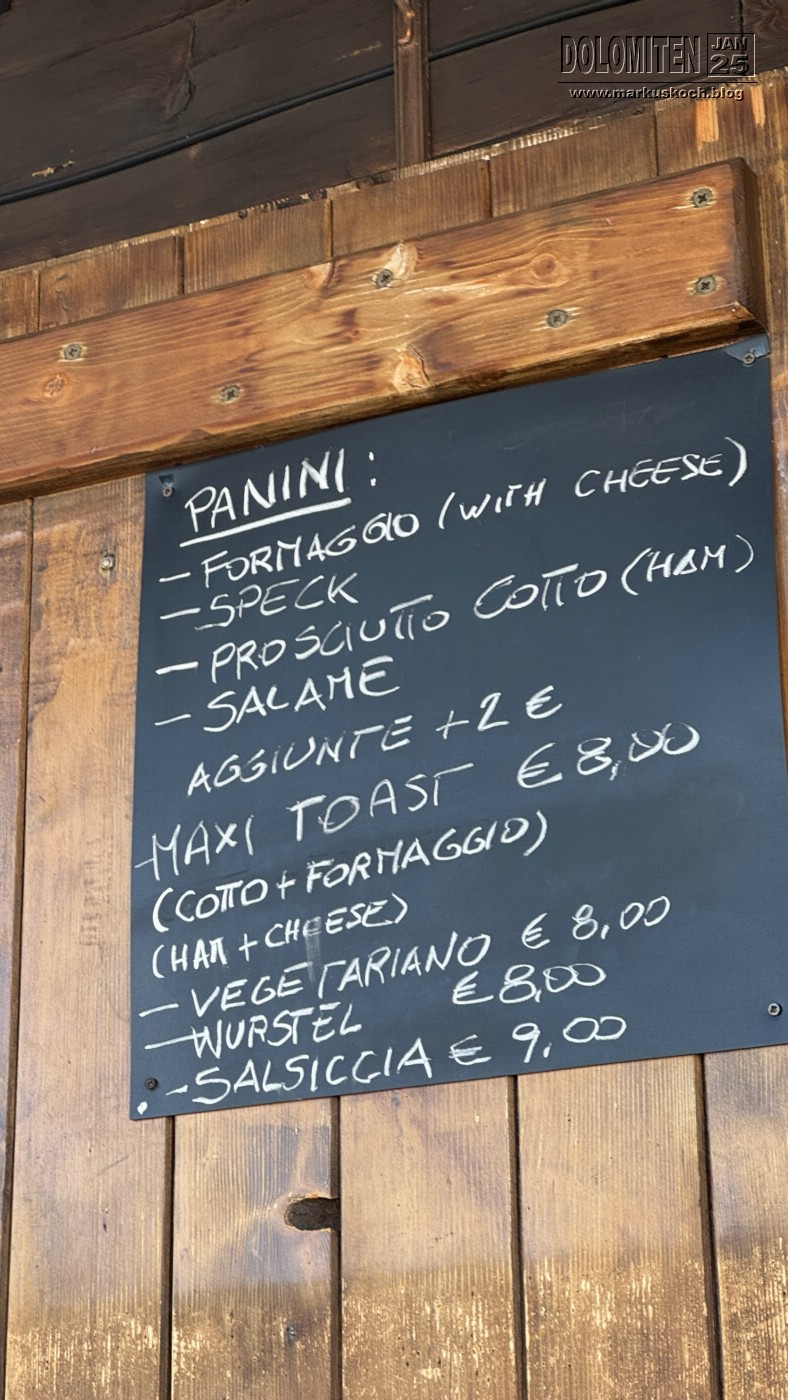 DOLOMITEN JAN 25
www.markuskoch.blog
PANINI:
- FORMAGGIO (WITH CHEESE)
- SPECK
- PROSCIUTTO COTTO (HAM)
- SALAME
AGGIUNTE +2 €
- MAXI TOAST € 8,00
(COTTO + FORMAGGIO)
(HAM + CHEESE)
- VEGETARIANO € 8,00
- WURSTEL € 8,00
- SALSICCIA € 9,00